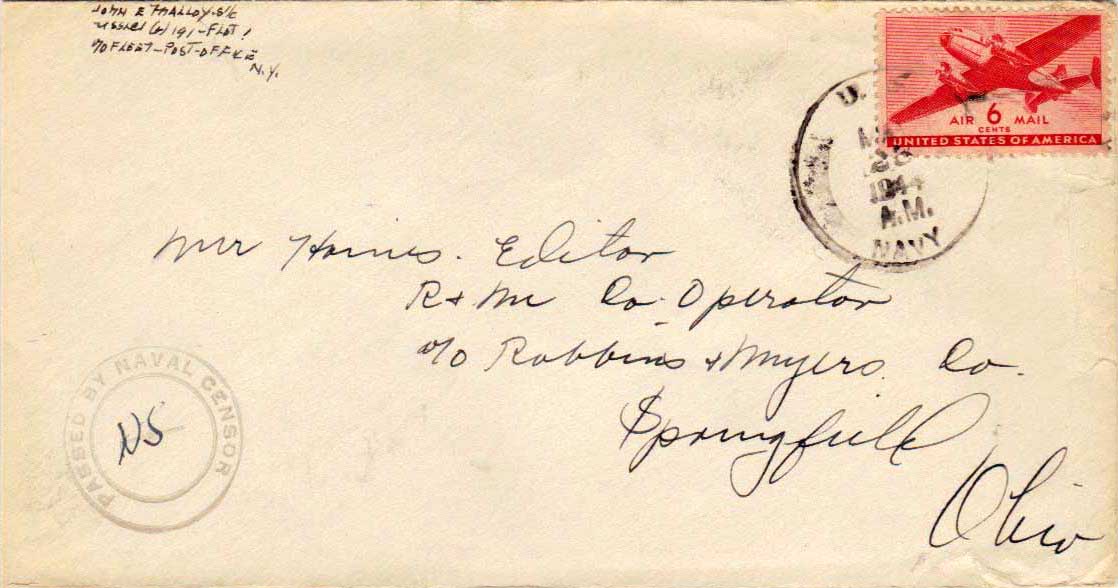 JOHN E MALLOY. S1/c
USSLCI (L) 191 - FLOT 1
c/o FLEET - POST - OFFICE
N.Y.
U.
28
1944
A.M.
NAVY
AIR 6 MAIL
CENTS
UNITED STATES OF AMERICA
Mr Haines. Editor
R & M Co. Operator
c/o Robbins & Myers. Co.
Springfield
Ohio
PASSED BY NAVAL CENSOR
NS